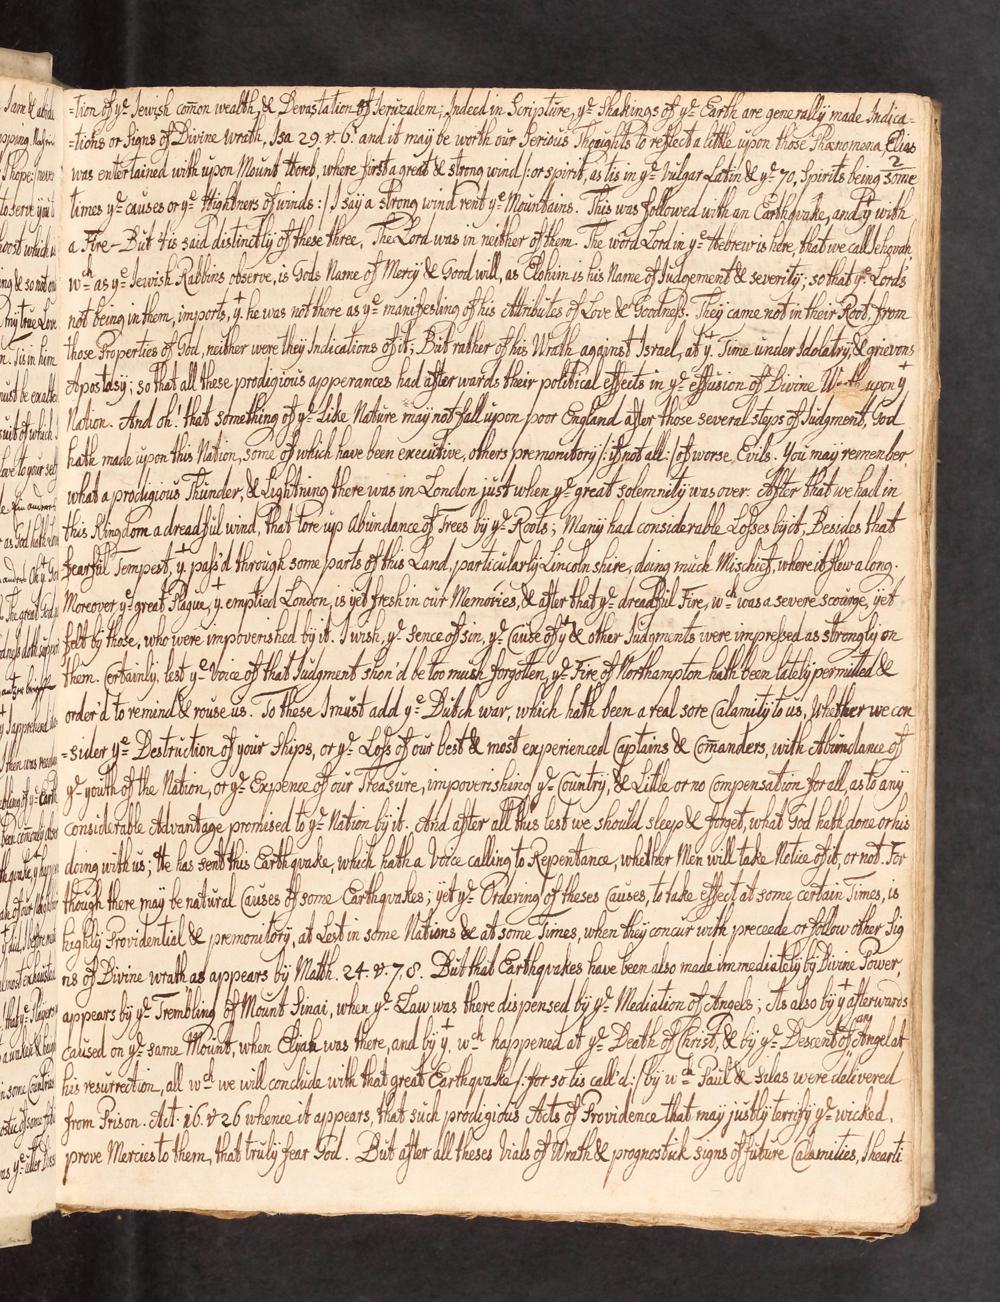 =tion of yᵉ Jewish com̄on wealth, & Devastation of Jeruzalem; Indeed in Scripture, yᵉ Shakings of yᵉ Earth are generally made Indica=
=tions or Signs of Divine wrath, Isa 29. v. 6. and it may be worth our Serious Thoughts to reflect a little upon those Phænomena, Elias
was entertained with upon Mount Horeb, where first a great & strong wind /: or spirit, as tis in yᵉ Vulgar Latin & yᵉ 70, Spirits being some
times yᵉ causes or yᵉ Hightners of winds :/ I say a strong wind rent yᵉ Mountains. This was followed with an Earthqvake, and yᵗ with
a Fire – But 'tis said distinctly of these three, The Lord was in neither of them. The word Lord in yᵉ Hebrew is here, that we call Jehovah,
wᶜʰ as yᵉ Jewish Rabbins observe, is Gods Name of Mercy & Good will, as Elohim is his Name of Judgement & severity; so that yᵉ Lord's
not being in them, imports, yᵗ he was not there as yᵉ manifesting of his Attributes of Love & Goodness. They came not in their Root, from
those Properties of God, neither were they Indications of it; But rather of his Wrath against Israel, at yᵗ Time under Idolatry, & grievous
Apostasy; so that all these prodigious apperances had afterwards their political effects in yᵉ effusion of Divine Wrath upon yᵗ
Nation. And oh! that something of yᵉ Like Nature may not fall upon poor England after those several steps of Judgment, God
hath made upon this Nation, some of which have been executive, others premonitory /: if not all :/ of worse Evils. You may remember,
what a prodigious Thunder, & Lightning there was in London just when yᵉ great solemnity was over. After that we had in
this Kingdom a dreadful wind, that tore up abundance of Trees by yᵉ Roots; Many had considerable Losses by it, Besides that
fearful Tempest, yᵗ pass'd through some parts of this Land, particularly Lincoln shire, doing much Mischief, where it flew along.
Moreover yᵉ great Plague, yᵗ emptied London, is yet fresh in our Memories, & after that yᵉ dreadful Fire, wᶜʰ was a severe scourge, yet
felt by those, who were impoverished by it. I wish, yᵉ sence of sin, yᵉ Cause of yᵗ & other Judgments were impressed as strongly on
them. Certainly, lest yᵉ Voice of that Judgment shou'd be too mush forgotten, yᵉ Fire of Northampton hath been lately permitted &
order'd to remind & rouse us. To these I must add yᵉ Dutch war, which hath been a real sore Calamity to us, Whether we con
=sider yᵉ Destruction of your ships, or yᵉ Loss of our best & most experienced Captains & Com̄anders, with Abundance of
yᵉ youth of the Nation, or yᵉ Expence of our Treasure, impoverishing yᵉ Country, & Little or no Compensation for all, as to any
considerable Advantage promised to yᵉ Nation by it. And after all this lest we should sleep & forget, what God hath done or his
doing with us; He has sent this Earthqvake, which hath a Voice calling to Repentance, whether Men will take Notice of it, or not. For
though there may be natural Causes of some Earthqvakes; yet yᵉ Ordering of theses Causes, to take effect at some certain Times, is
highly Providential & premonitory, at Lest in some Nations & at some Times, when they concur with preceede or follow other Sig
ns of Divine wrath as appears by Matth. 24. v. 7, 8. But that Earthqvakes have been also made immediately by Divine Power,
appears by yᵉ Trembling of Mount Sinai, when yᵉ Law was there dispensed by yᵉ Mediation of Angels; As also by yᵗ afterwards
caused on yᵉ same Mount, when Elyah was there, and by yᵗ, wᶜʰ happened at yᵉ Death of Christ, & by yᵉ Descent of any Angel at
his resurrection, all wᶜʰ we will conclude with that great Earthqvake /: for so tis call'd :/ by wᶜʰ Paul & Silas were delivered
from Prison. Act. 16. v. 26 whence it appears, that such prodigious Acts of Providence that may justly terrify yᵉ wicked,
prove Mercies to them, that truly fear God. But after all theses Vials of Wrath & prognostick signs of future Calamities, I hearti